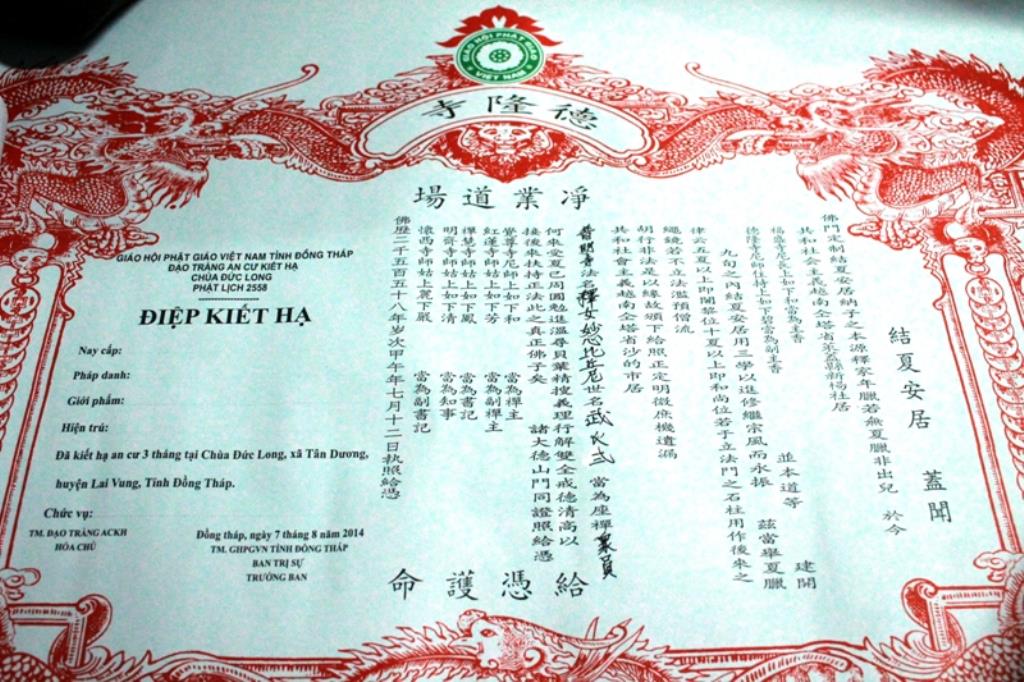 GIÁO HỘI PHẬT GIÁO
VIỆT NAM
德隆寺
淨業道場
結夏安居 蓋聞
佛門定制結夏安居納子之本源釋家年臘若無夏臘非出皃 於今
共和社會主義越南
福 寺尼長上如下和當為主香 建開
德隆寺尼師住持上如下碧當為副主香 並本道等 茲當舉夏臘
九旬之內結夏安居用三學以進修繼宗風而永振
律云五夏以上即闍黎位十夏以上即和尚位若于立法門之石柱用作後來之
繩鏡若不立法濫預僧流
胡行非法是以緣故頒下給照正定明微庶機遺漏
共和社會主義越南 塔省沙的市居
法名釋女妙 比丘尼世名武氏 當為座禪眾員
何來受夏已周圓勉進溫尋貝葉精搜義理行解雙全戒德清高以
接後來扶持正法此之真正佛子矣 諸大德山門同證照給憑
覺尊寺尼師上如下和 當為禪主
紅蓮寺師姑上如下芳 當為副禪主
禪慧寺師姑上如下鳳 當為書記
明齋寺師姑上如下清 當為知事
懷西寺師姑上麗下嚴 當為副書記
佛歷二千五百五十八年岁次甲午年七月十二日執照給憑
給憑護命
GIÁO HỘI PHẬT GIÁO VIỆT NAM TỈNH ĐỒNG THÁP
ĐẠO TRÀNG AN CƯ KIẾT HẠ
CHÙA ĐỨC LONG
PHẬT LỊCH 2558
ĐIỆP KIẾT HẠ
Nay cấp:
Pháp danh:
Giới phẩm:
Hiện trú:
Đã kiết hạ an cư 3 tháng tại Chùa Đức Long, xã Tân Dương,
huyện Lai Vung, Tỉnh Đồng Tháp.
Chức vụ:
TM. ĐẠO TRÀNG ACKH
HÓA CHỦ
Đồng tháp, ngày 7 tháng 8 năm 2014
TM. GHPGVN TỈNH ĐỒNG THÁP
BAN TRỊ SỰ
TRƯỞNG BAN